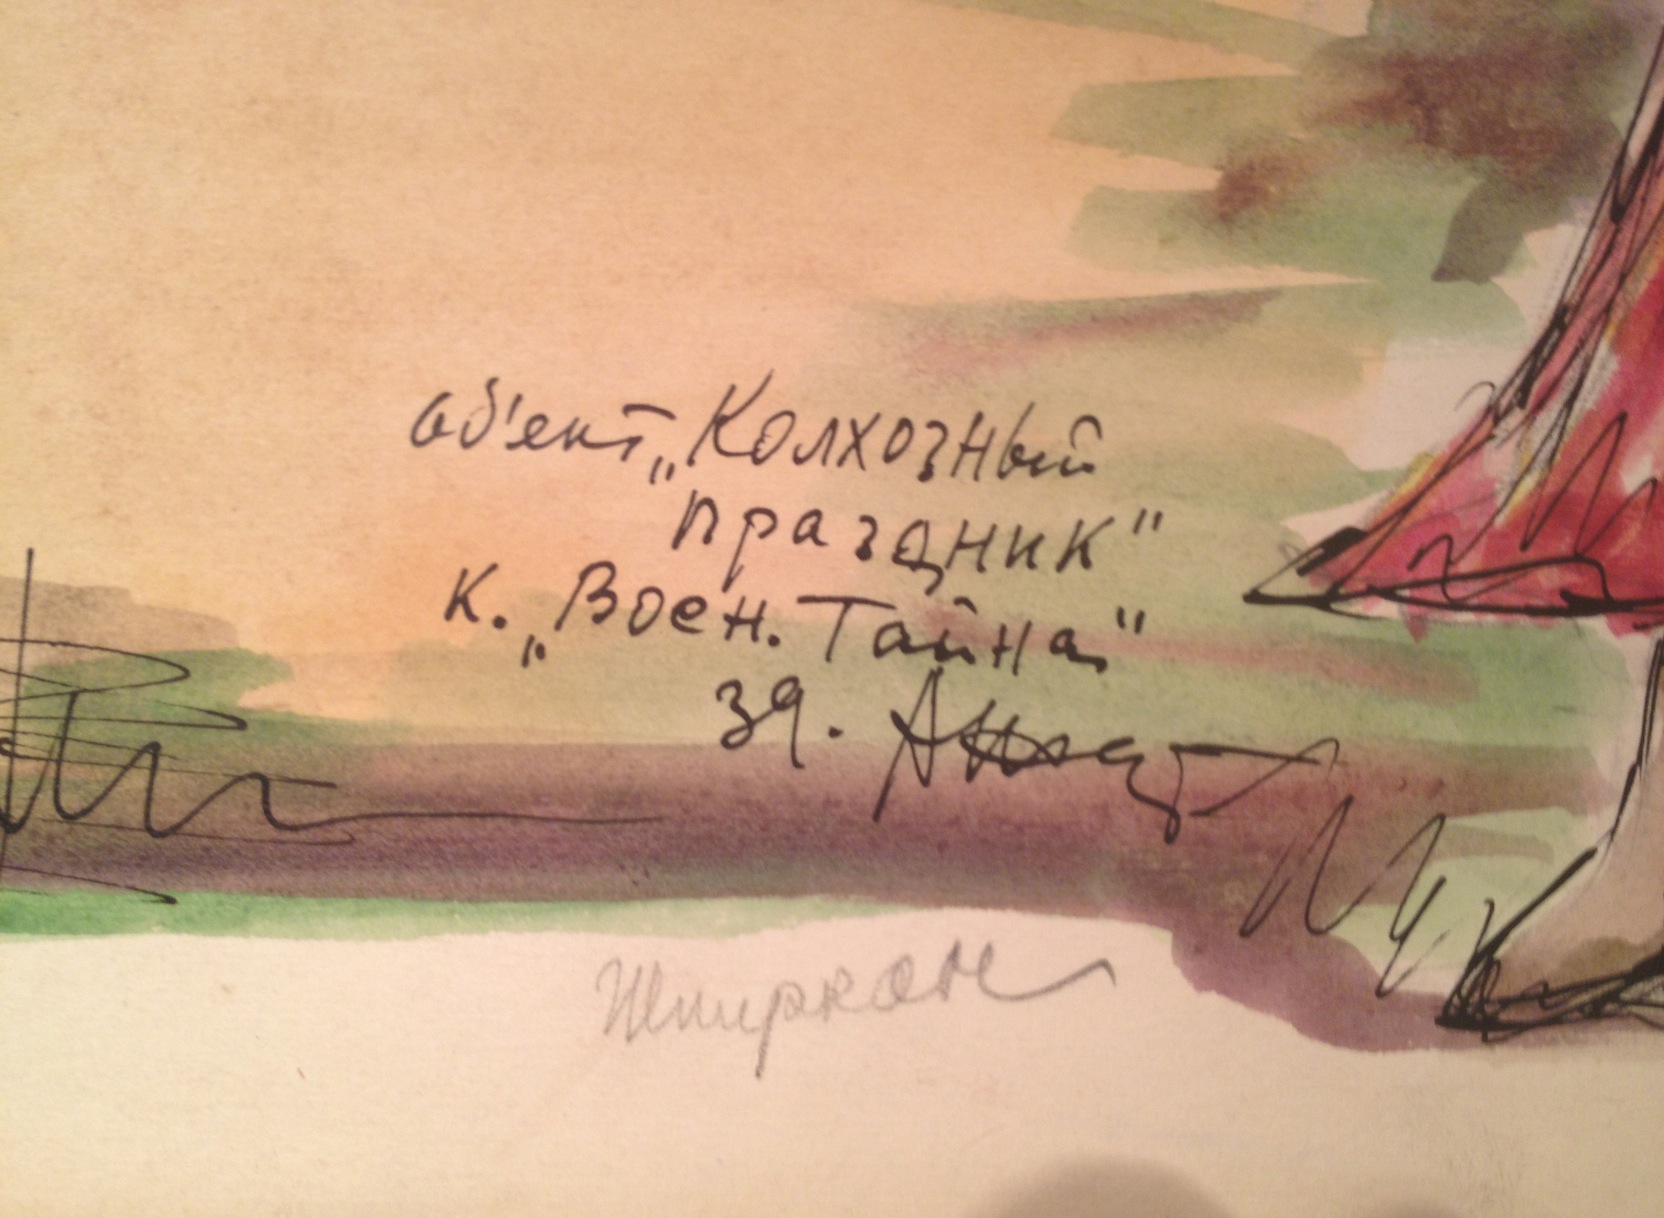 об'ект „Колхозный
праздник"
к. „Воен. Тайна"
39.